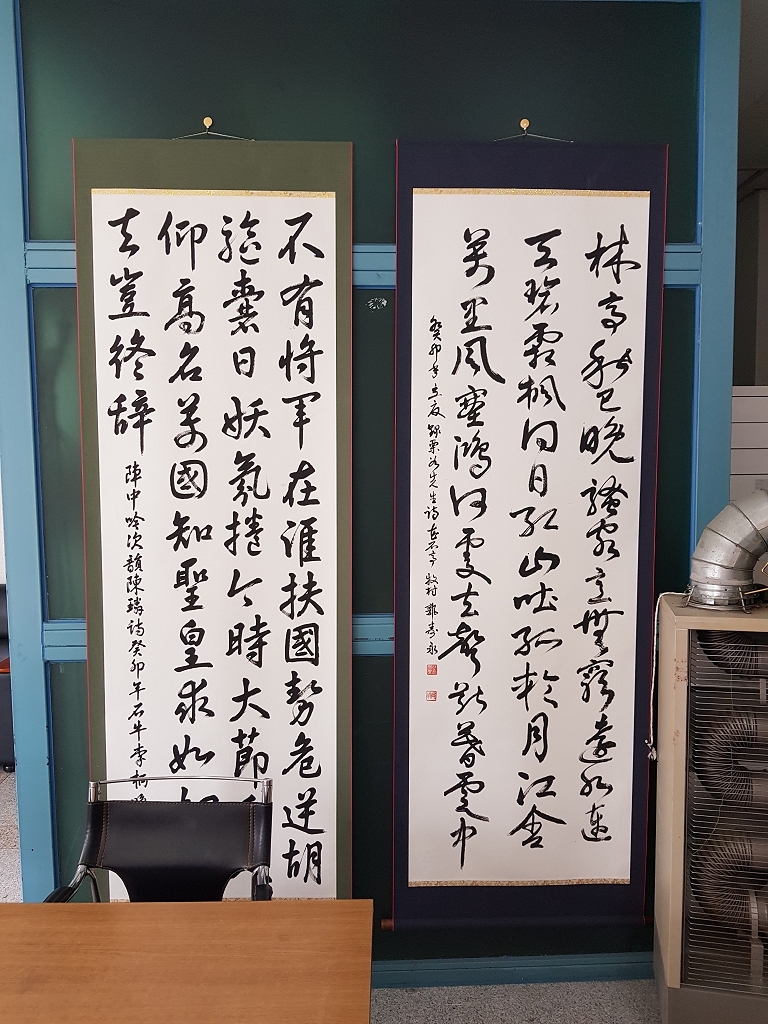 林亭秋已晚騷客意無窮遠水連
天碧霜楓向日紅山吐孤輪月江含
萬里風塞鴻何處去聲斷暮雲中
癸卯年立夏錄栗谷先生詩花石亭 牧村 鄭壽永
不有將軍在誰扶國勢危逆胡
驅囊日妖氛捲今時大節
仰高名萬國知聖皇求如
去豈終辭
陣中吟次韻陳璘詩癸卯年石牛李柄